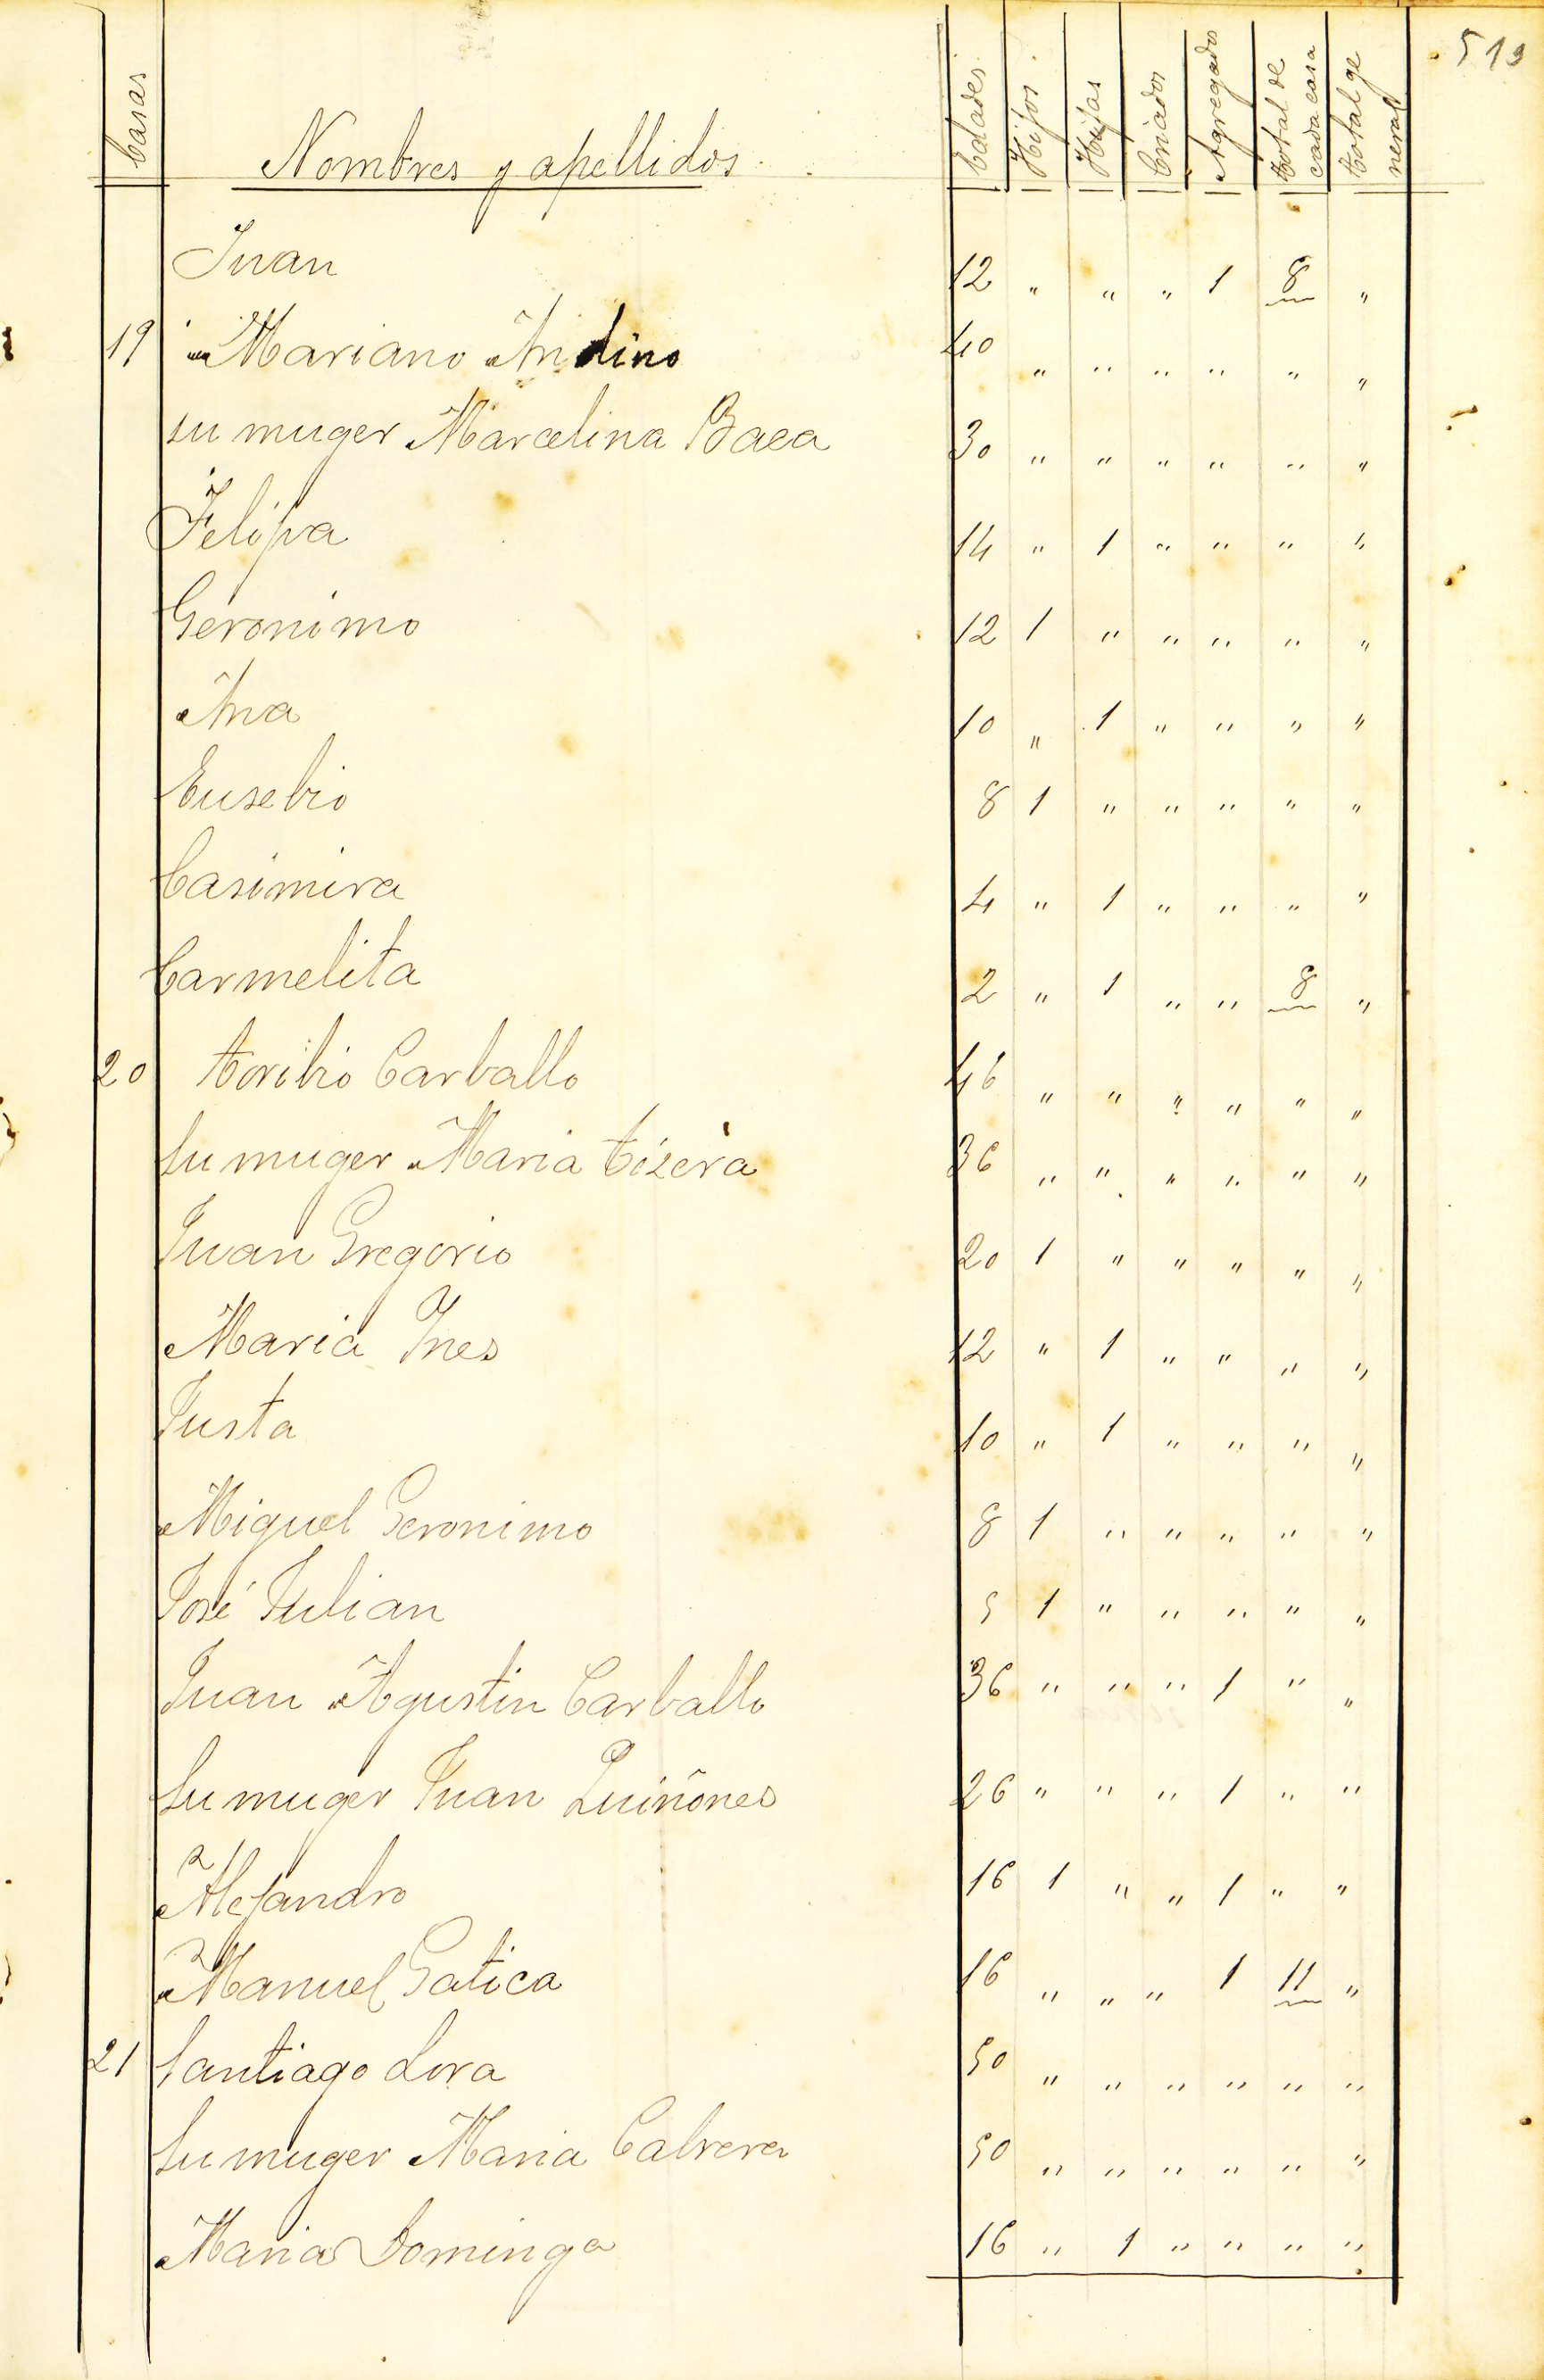 513
Casas Nombres y apellidos Edades Hijos Hijas Criados Agregados Total de cada casa Total general
Juan 12 " " " 1 8 "
19 Mariano Andino 40 " " " " " "
su muger Marcelina Baea 30 " " " " " "
Felipa 14 " 1 " " " "
Geronimo 12 1 " " " " "
Ana 10 " 1 " " " "
Eusebio 8 1 " " " " "
Casimira 4 " 1 " " " "
Carmelita 2 " 1 " " 8 "
20 Toribio Carballo 46 " " " " " "
Su muger Maria Tizera 36 " " " " " "
Juan Gregorio 20 1 " " " " "
Maria Ines 12 " 1 " " " "
Justa 10 " 1 " " " "
Miguel Geronimo 8 1 " " " " "
José Julian 5 1 " " " " "
Juan Agustin Carballo 36 " " " 1 " "
Su muger Juan Quiñones 26 " " " 1 " "
Alejandro 16 1 " " 1 " "
Manuel Gatica 16 " " " 1 11 "
21 Santiago Lora 50 " " " " " "
Su muger Maria Cabrera 50 " " " " " "
Maria Dominga 16 " 1 " " " "